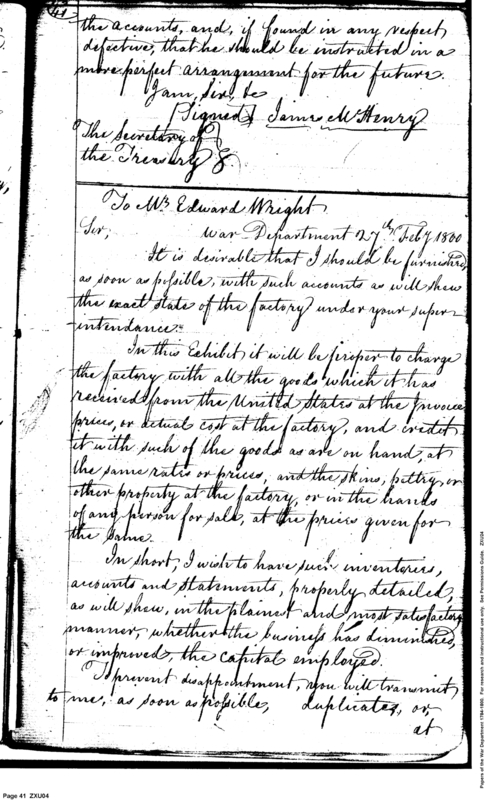 41
the accounts, and, if found in any respect
defective, that he should be instructed in a
more perfect arrangement for the future.
I am, Sir, &c
[Signed] James McHenry
The Secretary of
the Treasury
To Mr Edward Wright
Sir, War Department 27th Feby 1800
It is desirable that I should be furnished
as soon as possible, with such accounts as will shew
the exact state of the factory under your super-
intendance.
In this Exhibit it will be proper to charge
the factory with all the goods which it has
received from the United States at the Invoice
prices, or actual cost at the factory, and credit
it with such of the goods as are on hand, at
the same rates or prices, and the skins, peltry, or
other property at the factory, or in the hands
of any person for sale, at the prices given for
the same.
In short, I wish to have such inventories,
accounts and statements, properly detailed,
as will shew, in the plainest and most satisfactory
manner, whether the business has diminished,
or improved, the capital employed.
To prevent disappointment, you will transmit
to me, as soon as possible, duplicates, or,
at
Page 41 ZXU04
Papers of the War Department 1784-1800. For research and instructional use only. See Permissions Guide. ZXU04